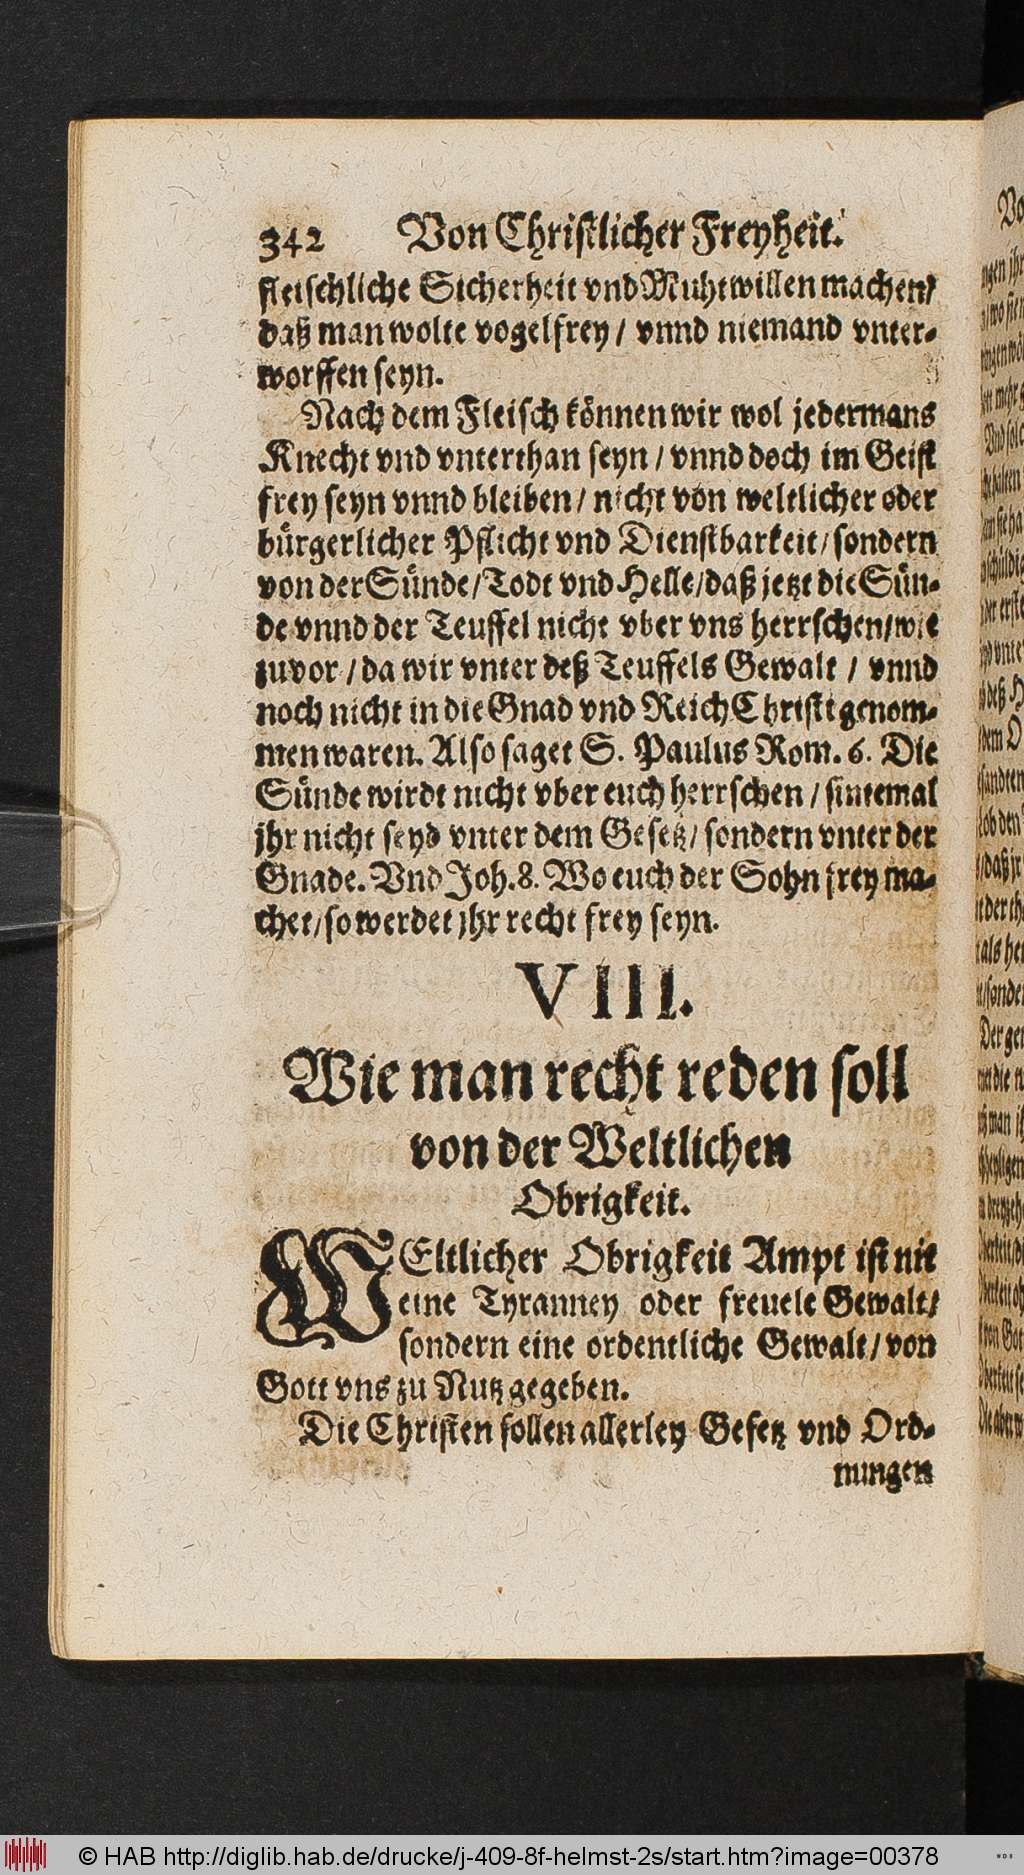 342 Von Christlicher Freyheit.
fleischliche Sicherheit vnd Muhtwillen machen/
daß man wolte vogelfrey / vnnd niemand vnter-
worffen seyn.
Nach dem Fleisch können wir wol jedermans
Knecht vnd vnterthan seyn / vnnd doch im Geist
frey seyn vnnd bleiben / nicht von weltlicher oder
bürgerlicher Pflicht vnd Dienstbarkeit / sondern
von der Sünde / Todt vnd Helle / daß jetzt die Sün-
de vnnd der Teuffel nicht vber vns herrschen / wie
zuvor / da wir vnter deß Teuffels Gewalt / vnnd
noch nicht in die Gnad vnd Reich Christi genom-
men waren. Also saget S. Paulus Rom. 6. Die
Sünde wirdt nicht vber euch herrschen / sintemal
jhr nicht seyd vnter dem Gesetz / sondern vnter der
Gnade. Vnd Joh. 8. Wo euch der Sohn frey ma-
chet / so werdet jhr recht frey seyn.
VIII.
Wie man recht reden soll
von der Weltlichen
Obrigkeit.
WEltlicher Obrigkeit Ampt ist nit
eine Tyranney oder freuele Gewalt /
sondern eine ordentliche Gewalt / von
Gott vns zu Nutz gegeben.
Die Christen sollen allerley Gesetz vnd Ord-
nungen
© HAB http://diglib.hab.de/drucke/j-409-8f-helmst-2s/start.htm?image=00378